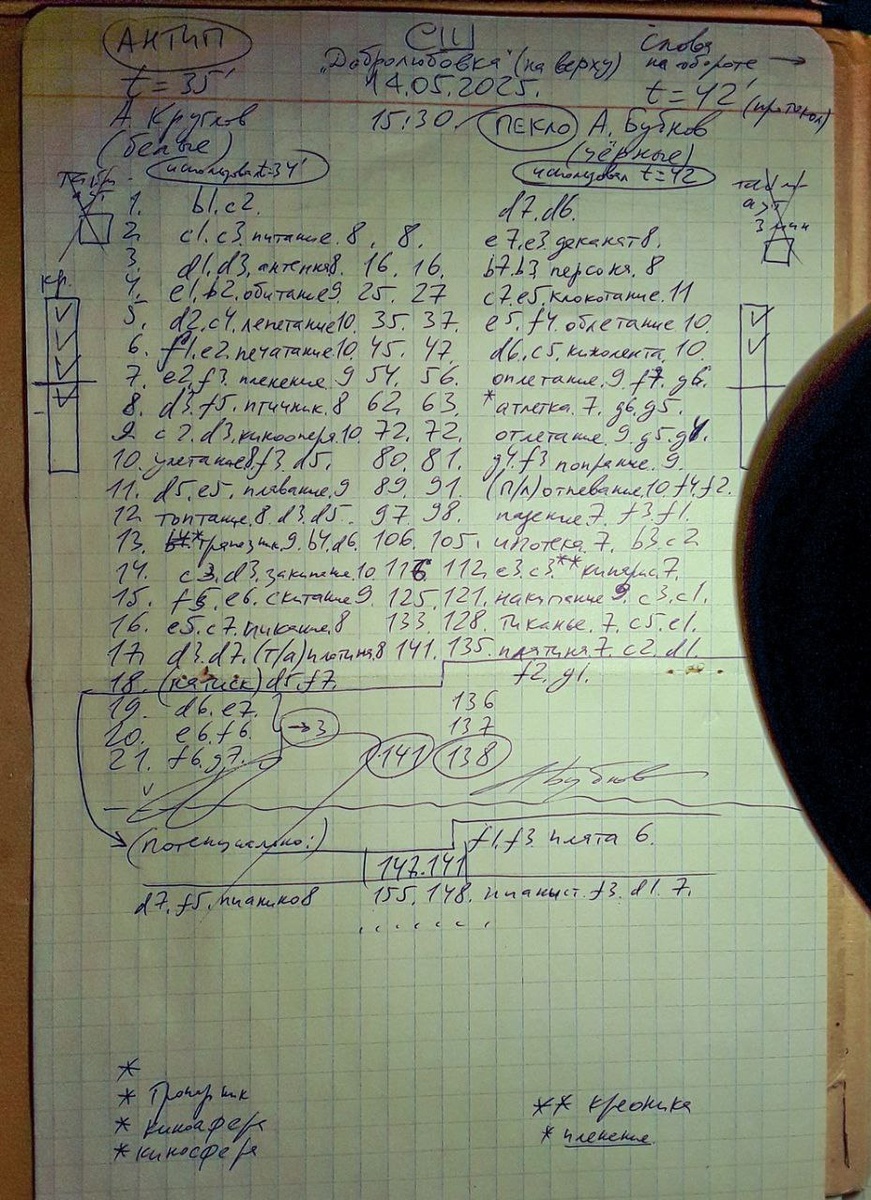 АНТИП
СШ
Слова
на обороте →
"Добролюбовка" (на верху)
t = 35'
14.05.2025.
t = 42' (протокол)
А. Круглов
15:30
ПЕКЛО
А. Бубнов
(белые)
(чёрные)
использовал t=34'
использовал t=42
3 мин
кр.
1. b1.c2. d7.d6.
2. c1.c3. питание. 8, 8. e7.e3 деканат 8.
3. d1.d3, антенна 8. 16. 16. b7.b3 персона. 8
4. e1.b2. обитание 9 25. 27 c7.e5. клокотание. 11
5. d2.c4. лепетание 10. 35. 37. e5.f4. облетание 10
6. f1.e2. печатание. 10 45. 47. d6.c5. кинолента. 10.
7. e2.f3. пленение. 9 54. 56. оплетание. 9. f7. g6.
8. d3.f5. птичник. 8 62. 63, *атлетка. 7. g6.g5.
9. c2.d3. киноопера. 10. 72. 72. отлетание. 9. g5.g4.
10. улетание 8 f3.d5. 80. 81. g4.f3 попрание. 9.
11. d5.e5. плавание. 9 89. 91. (п/л) отпевание. 10. f4.f2.
12. топтание. 8. d3.d5. 97. 98. падение. 7. f3.f1.
13. 9. b4.d6. 106. 105. ипотека. 7. b3.c2
14. c3.d3. закипание. 10. 116 112. e3.c3.** кипарис. 7.
15. f5.e6. скитание 9. 125. 121. накипание 9. c3.c1.
16. e5.c7. пикание. 8 133. 128. тиканье. 7. c5.e1.
17. d3.d7. (т/а) плотина. 8 141. 135. платина. 7. c2. d1.
18. (натиск) d5.f7. f2.g1.
19. d6.e7. 136
20. e6.f6. → 3 137
21. f6.g7. 141 138
(потенциально:) f1.f3 плата 6.
147.141
d7.f5. пианино 8 155. 148. пианист. f3.d1. 7.
*
*
* киноафера
* киносфера
** хроника
* пленение